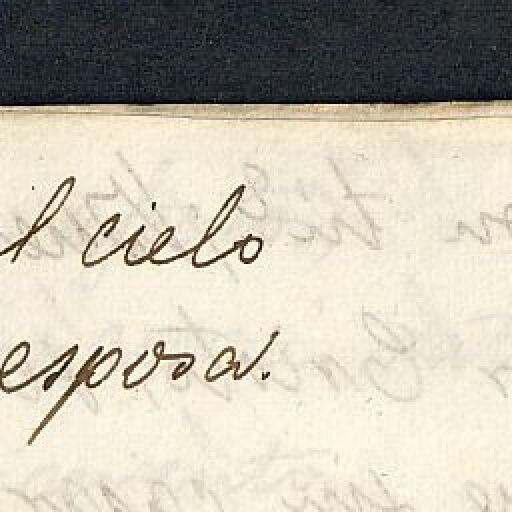 l cielo
esposa.